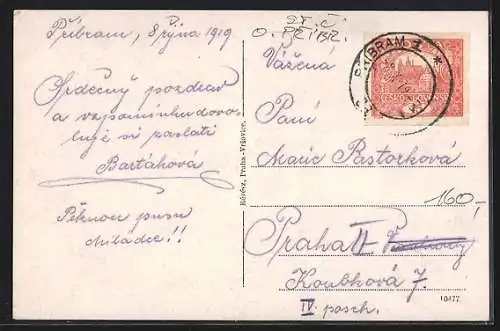 Příbram, 8 října 1919
Srdečný pozdrav
a vzpomínku dovo-
luje si zaslati
Bartáková
Pěknou pusu
miláčce!!
ST. Č
O. PŘÍBR.
PŘÍBRAM 1
Vážená
Paní
Marie Pastorková
160,-
Praha II
Koubková 7.
IV. posch.
Révész, Praha-Vršovice.
10477